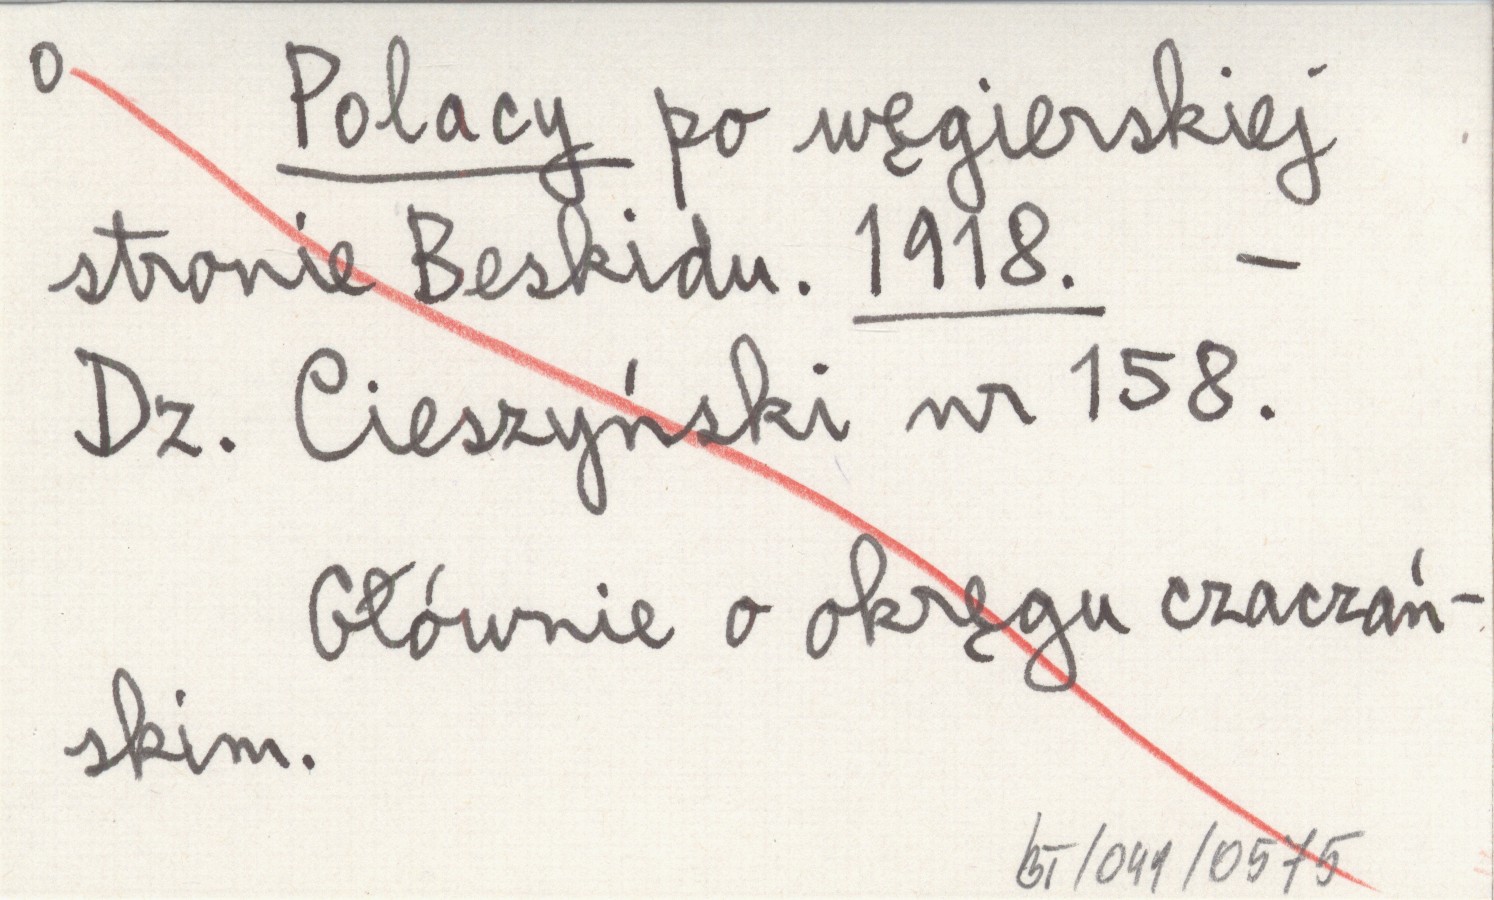 o Polacy po węgierskiej
stronie Beskidu. 1918. –
Dz. Cieszyński nr 158.
Głównie o okręgu czaczań-
skim.
BT/041/0575